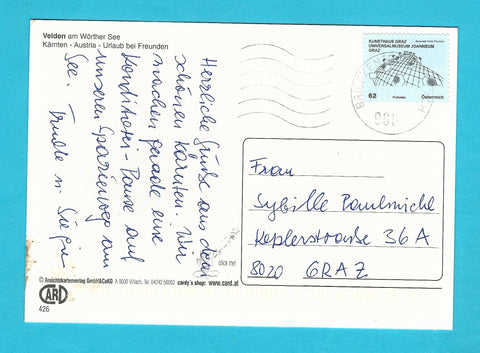 Velden am Wörther See
Kärnten - Austria - Urlaub bei Freunden
KUNSTHAUS GRAZ
UNIVERSALMUSEUM JOANNEUM
GRAZ
62
Österreich
Herzliche Grüße aus dem
schönen Kärnten. Wir
machen gerade eine
Konditorei-Pause auf
unseren Spazierweg am
See. Trudle u.
Frau
Sybille Paulmichl
Keplerstraße 36A
8020 GRAZ
click me!
© Ansichtskartenverlag GmbH&CoKG A 9500 Villach, Tel. 04242 cardy's shop: www.card.at
CARD
426